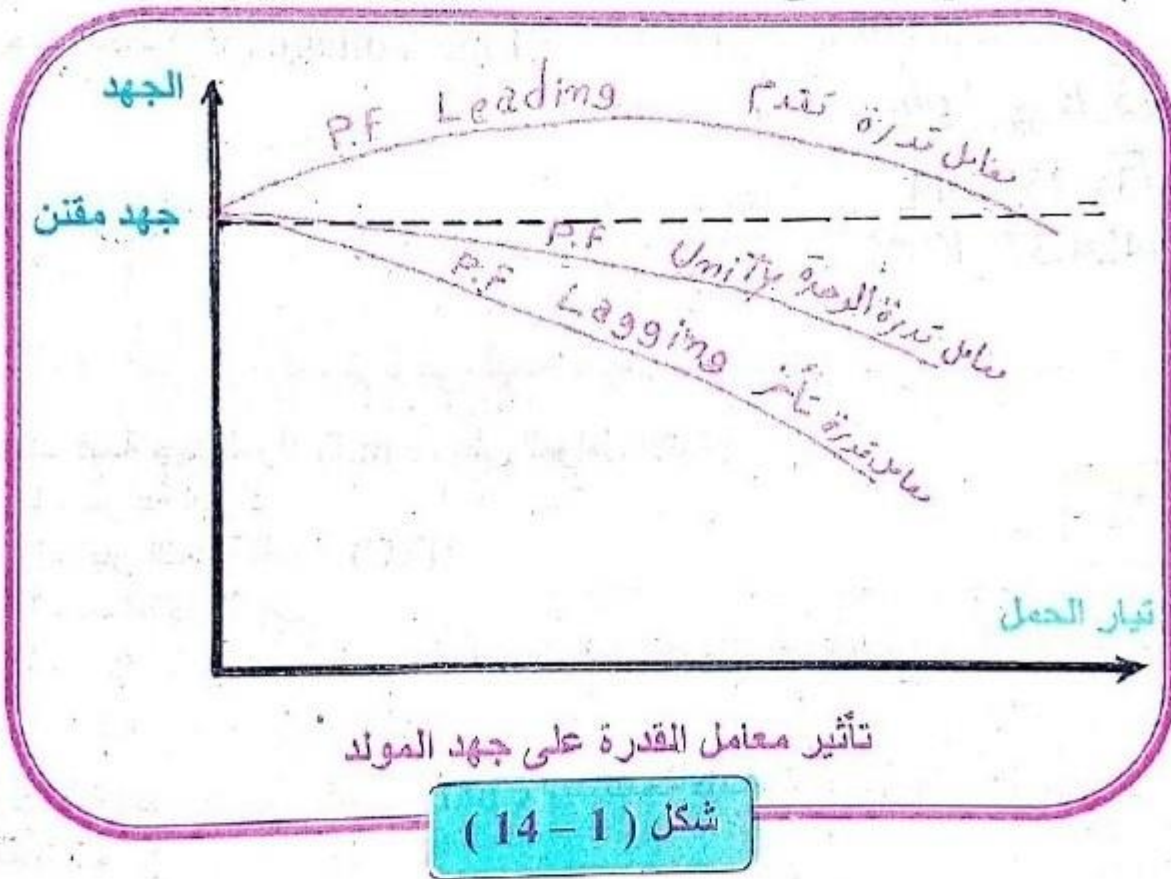 الجهد
P.F Leading معامل قدرة تقدم
جهد مقنن
P.F Unity معامل قدرة الوحدة
P.F Lagging معامل قدرة تأخر
تيار الحمل
تأثير معامل القدرة على جهد المولد
شكل ( 1 – 14 )